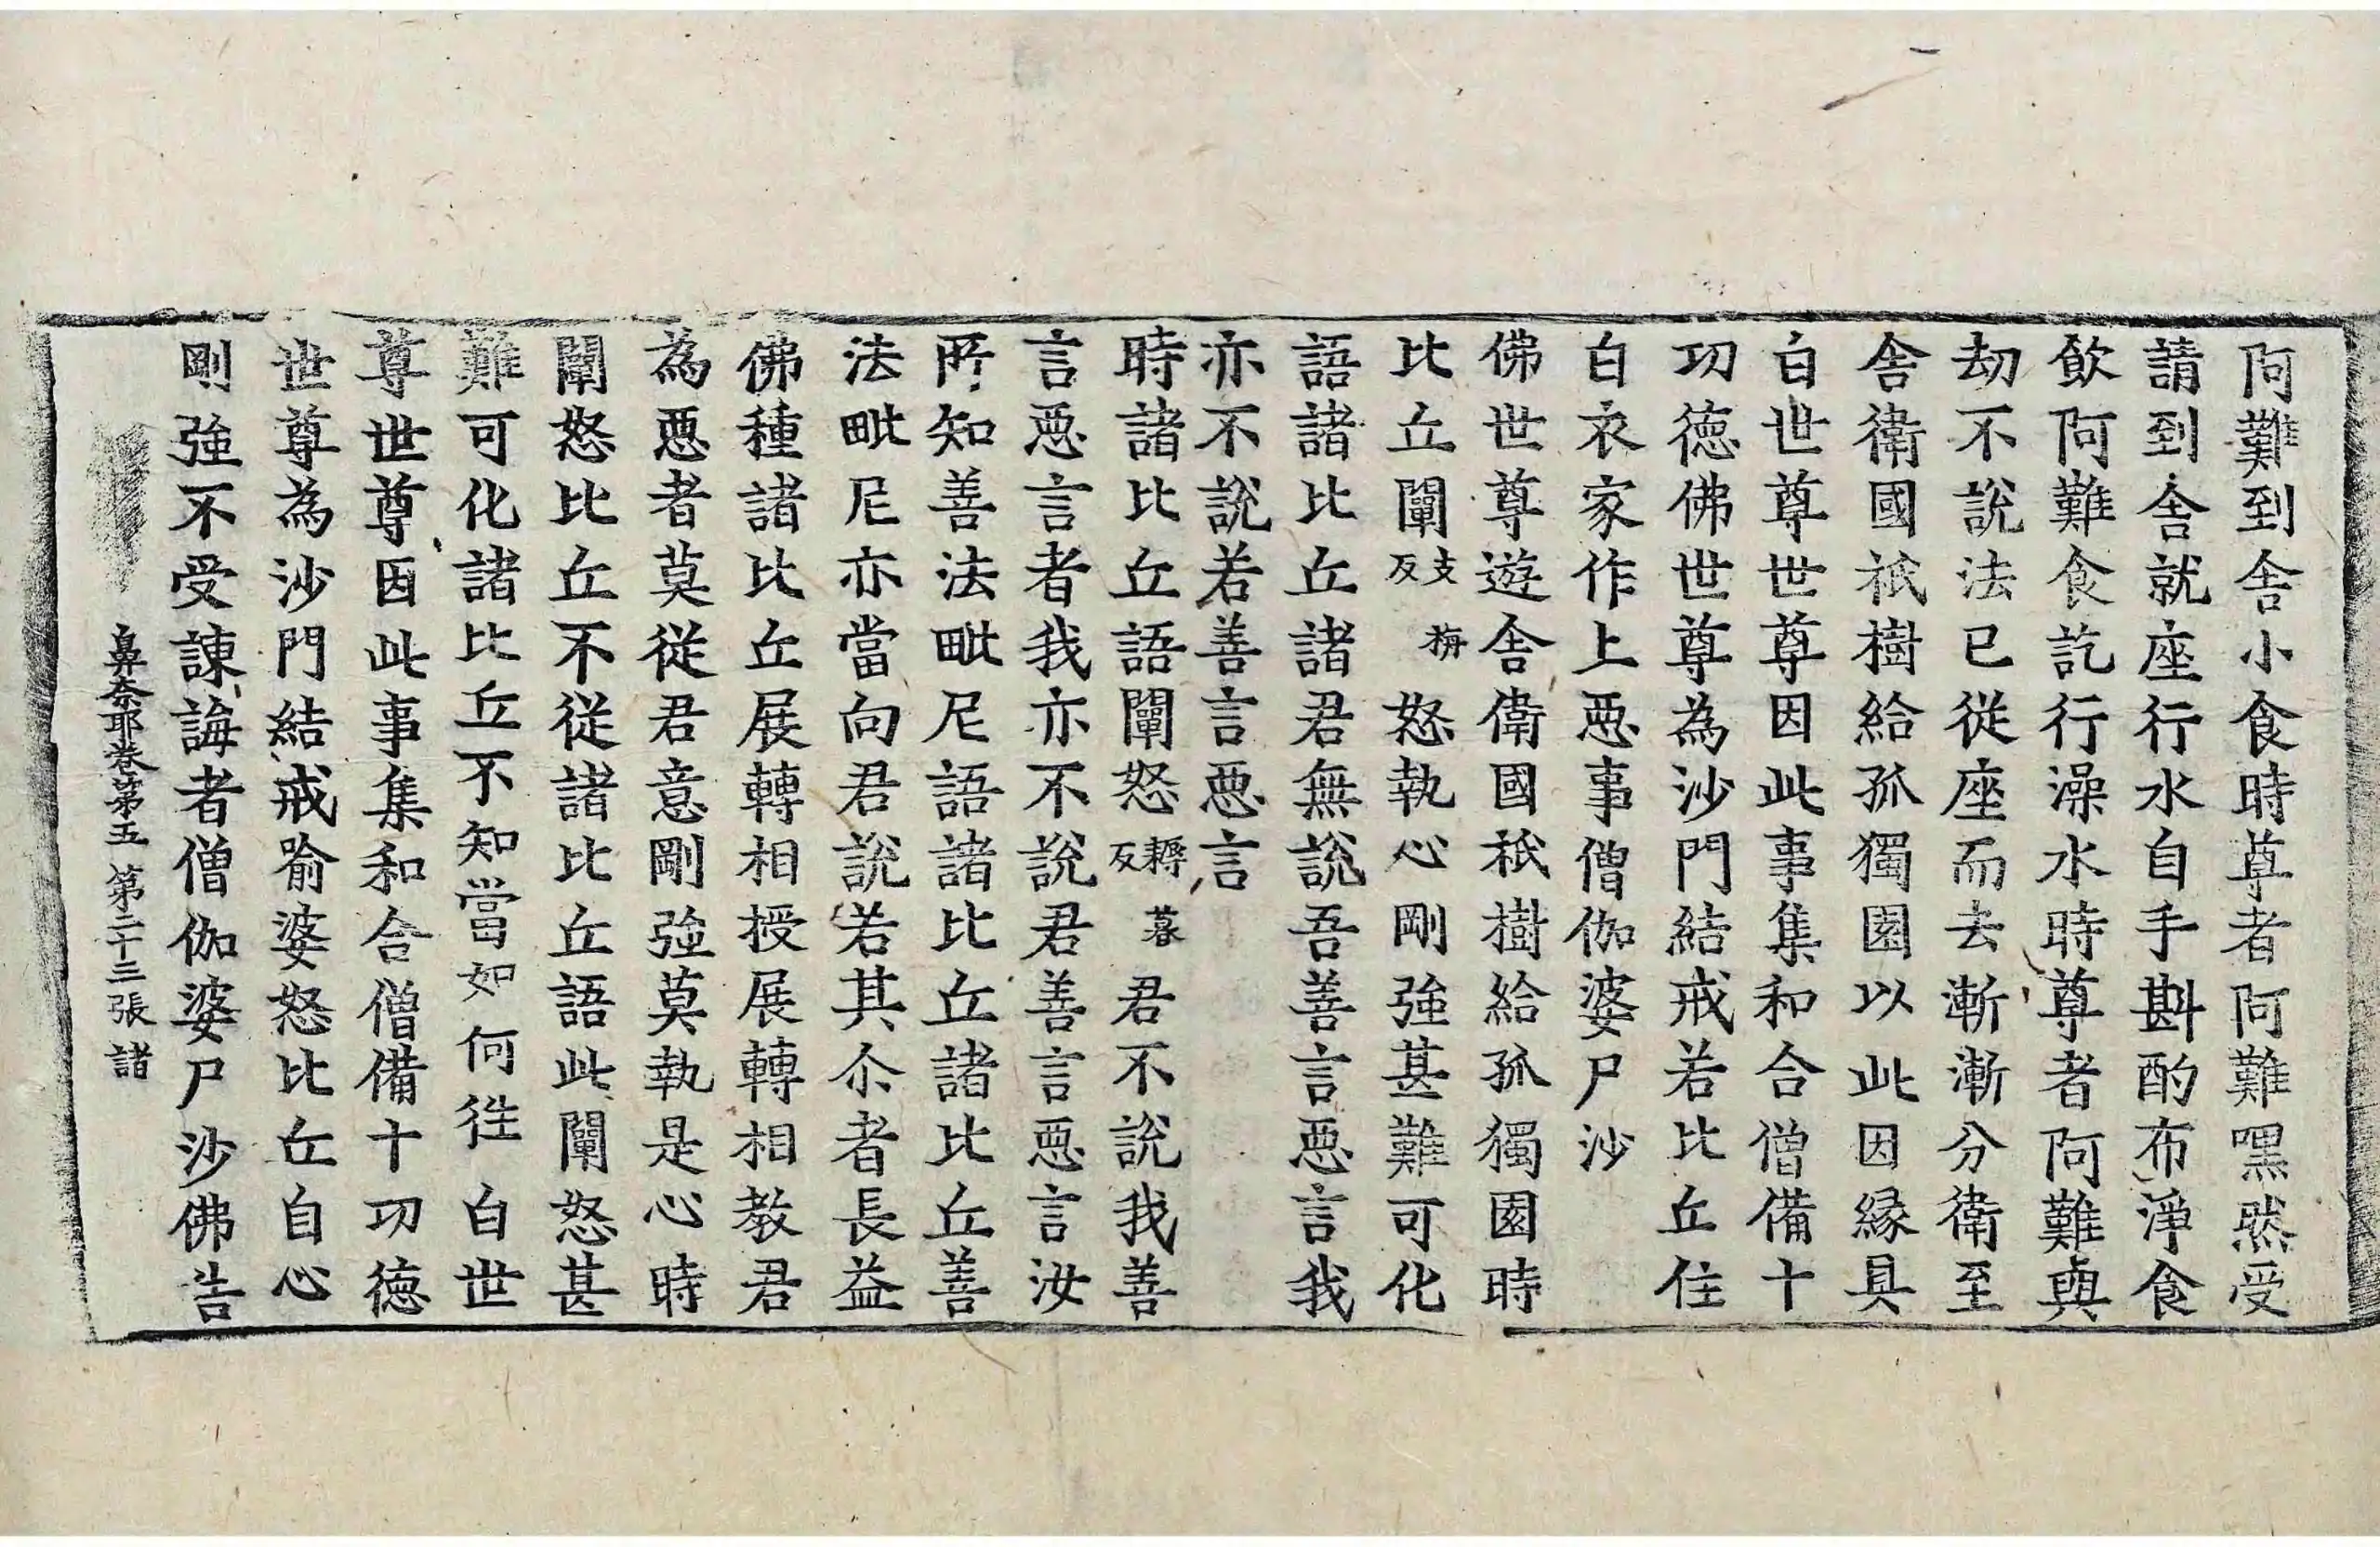 阿難到舍小食時尊者阿難嘿然受
請到舍就座行水自手斟酌布淨食
飲阿難食訖行澡水時尊者阿難與
劫不說法已從座而去漸漸分衛至
舍衛國祇樹給孤獨園以此因緣具
白世尊世尊因此事集和合僧備十
功德佛世尊為沙門結戒若比丘住
白衣家作上惡事僧伽婆尸沙
佛世尊遊舍衛國祇樹給孤獨園時
比丘闡支反怒執心剛強甚難可化
語諸比丘諸君無說吾善言惡言我
亦不說若善言惡言
時諸比丘語闡怒耨反君不說我善
言惡言者我亦不說君善言惡言汝
所知善法毗尼語諸比丘諸比丘善
法毗尼亦當向君說若其尒者長益
佛種諸比丘展轉相授展轉相教君
為惡者莫從君意剛強莫執是心時
闡怒比丘不從諸比丘語此闡怒甚
難可化諸比丘不知當如何徃白世
尊世尊因此事集和合僧備十功德
世尊為沙門結戒喻婆怒比丘自心
剛強不受諫誨者僧伽婆尸沙佛告
鼻奈耶卷第五 第二十三張 諸